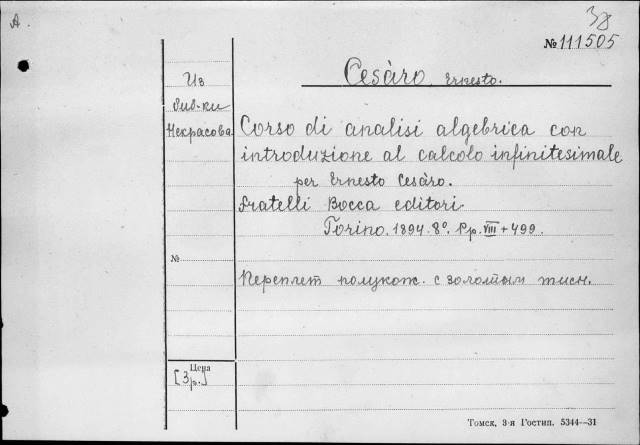 А.
38
№ 111505
Cesàro Ernesto.
Из
биб-ки
Некрасова
Corso di analisi algebrica con
introduzione al calcolo infinitesimale
per Ernesto Cesàro.
Fratelli Bocca editori.
Torino. 1894. 8°. Pp. VIII + 499.
№
Переплет полукож. с золотым тисн.
Цена
[3 р.]
Томск, 3-я Гостип. 5344—31